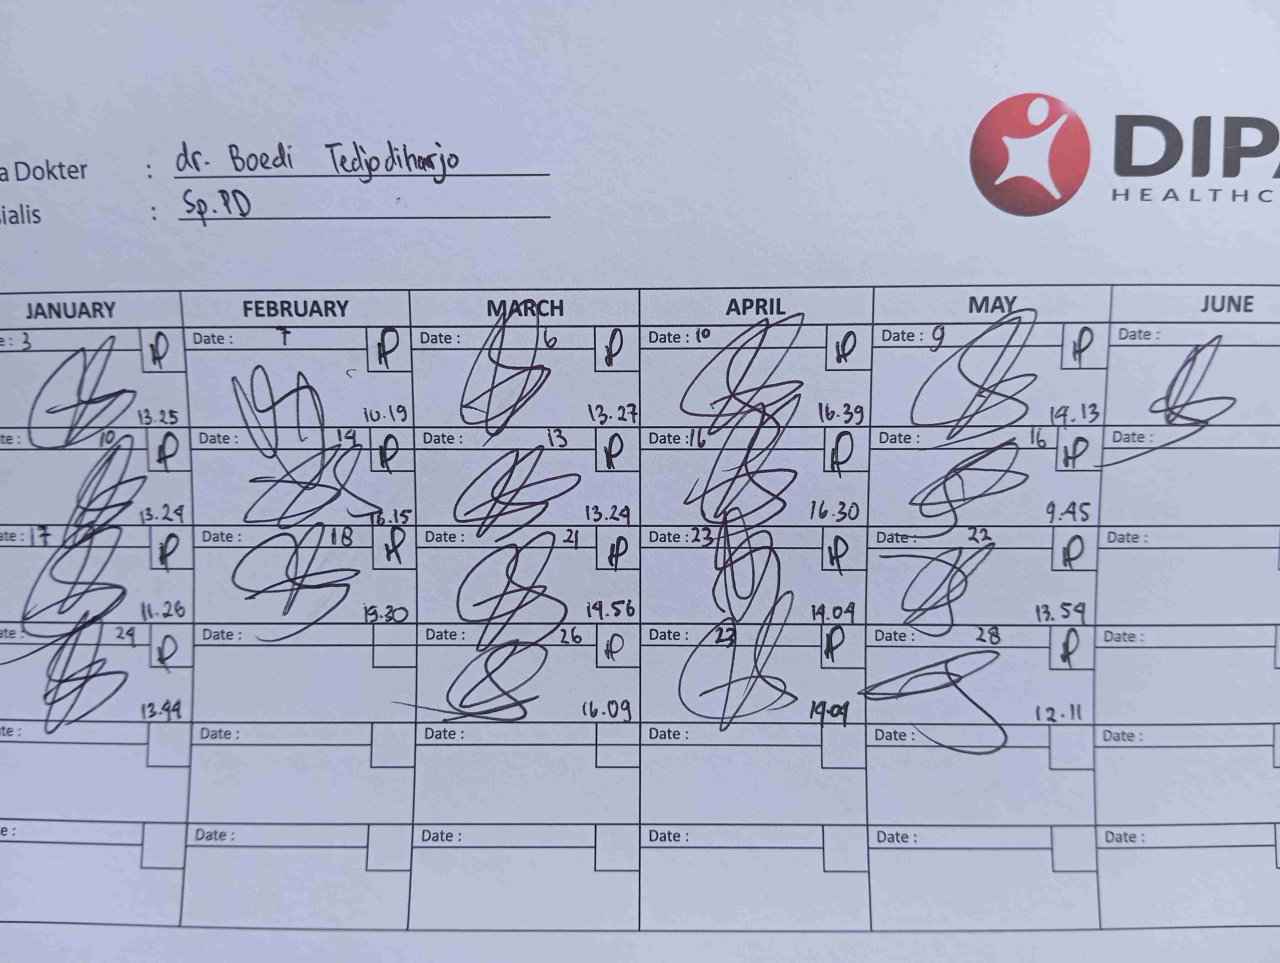 a Dokter : dr. Boedi Tedjodiharjo
ialis : Sp.PD
DIPA
HEALTHC
JANUARY FEBRUARY MARCH APRIL MAY JUNE
e : 3 Date : 7 Date : 6 Date : 10 Date : 9 Date :
13.25 10.19 13.27 16.39 14.13
te : 10 Date : 14 Date : 13 Date : 16 Date : 16 Date :
13.24 16.15 13.24 16.30 9.45
ate : 17 Date : 18 Date : 21 Date : 23 Date : 22 Date :
11.26 19.30 14.56 14.04 13.54
ate : 24 Date : Date : 26 Date : 23 Date : 28 Date :
13.44 16.09 14.04 12.11
te : Date : Date : Date : Date : Date :
e : Date : Date : Date : Date : Date :